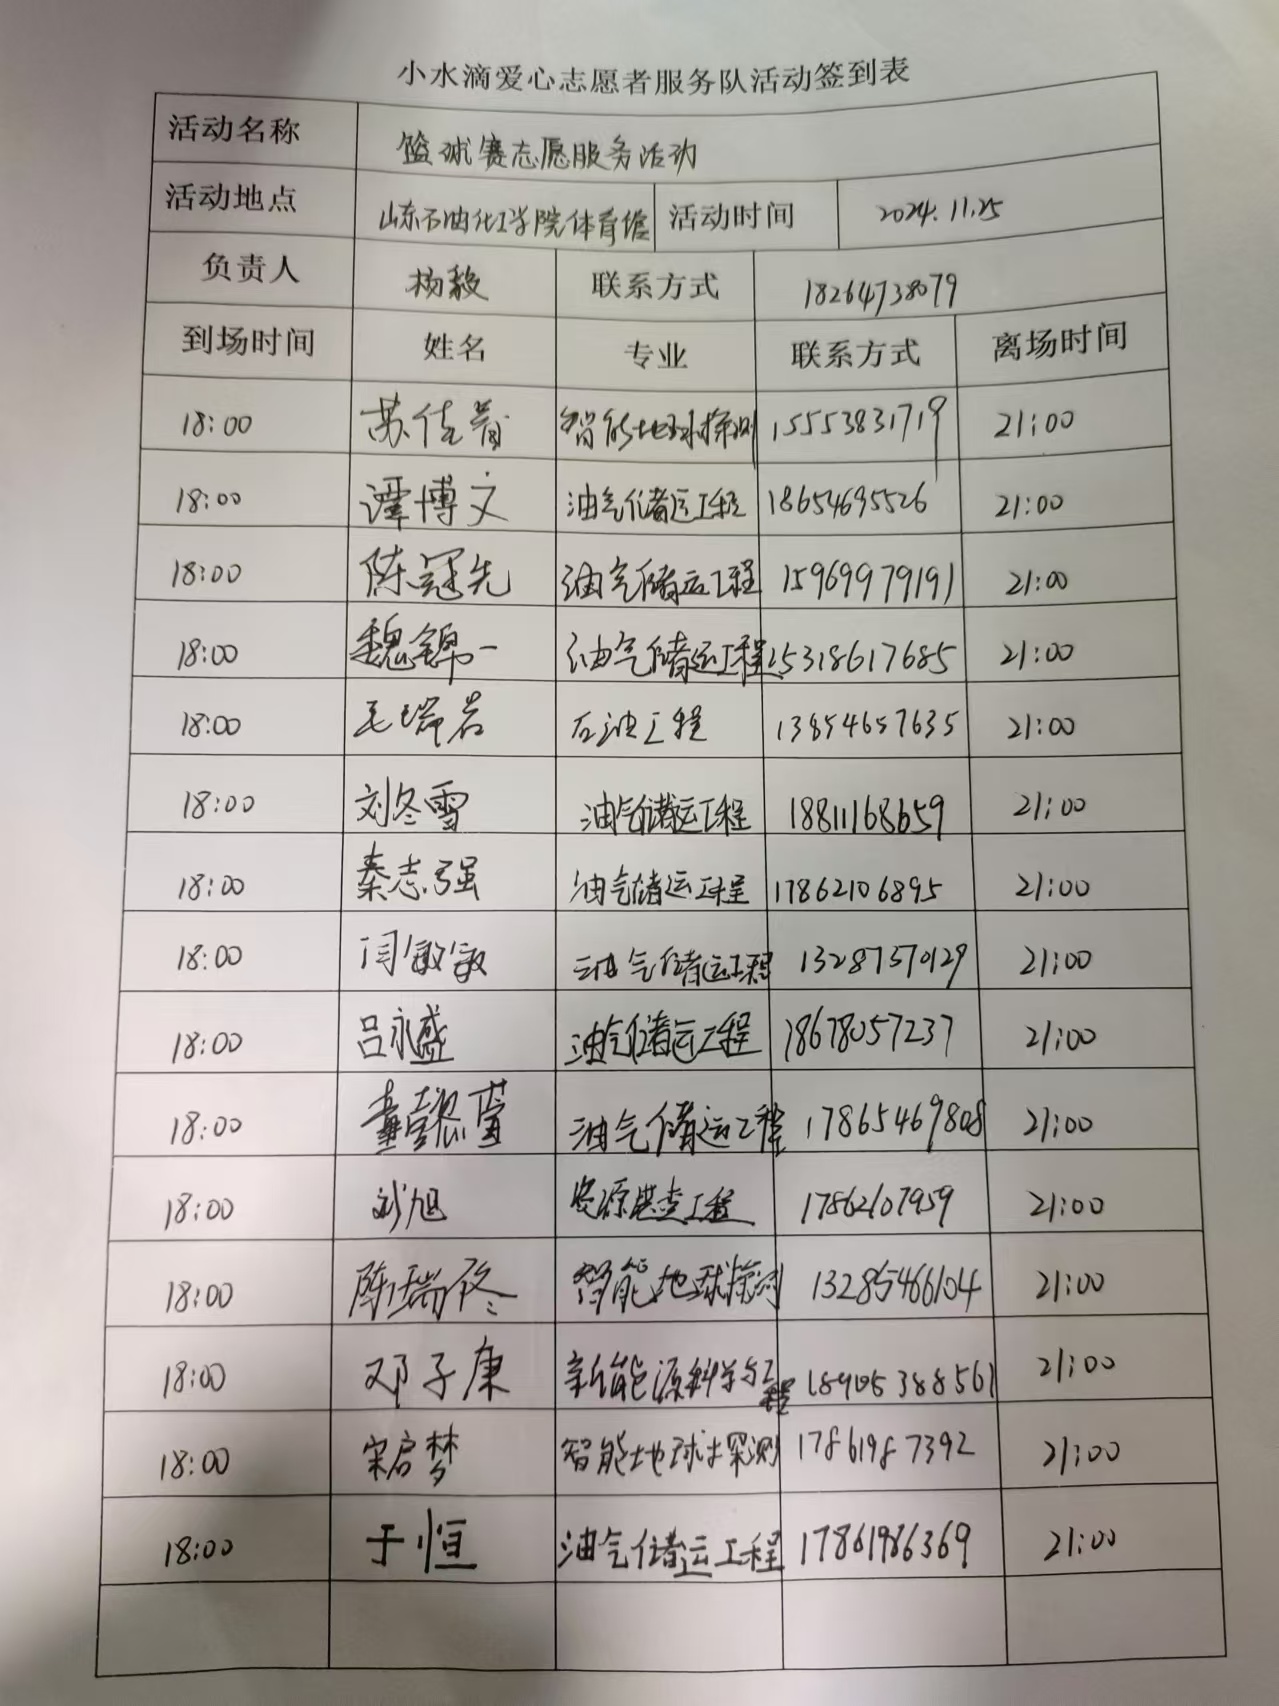 小水滴爱心志愿者服务队活动签到表
活动名称 篮球赛志愿服务活动
活动地点 山东石油化工学院体育馆 活动时间 2024.11.25
负责人 杨毅 联系方式 18264738079
到场时间 姓名 专业 联系方式 离场时间
18:00 苏佳 智能地球探测 15553831719 21:00
18:00 谭博文 油气储运工程 18654695526 21:00
18:00 陈冠先 油气储运工程 15969979191 21:00
18:00 魏锦一 油气储运工程 15318617685 21:00
18:00 王瑞岩 石油工程 13854657635 21:00
18:00 刘冬雪 油气储运工程 18811168659 21:00
18:00 秦志强 油气储运工程 17862106895 21:00
18:00 闫敏敏 油气储运工程 13287370129 21:00
18:00 吕永盛 油气储运工程 18678057237 21:00
18:00 油气储运工程 17865469808 21:00
18:00 刘旭 资源勘查工程 17862107959 21:00
18:00 陈瑞佟 智能地球探测 13285466104 21:00
18:00 邓子康 新能源科学与工程 18905388561 21:00
18:00 宋启梦 智能地球探测 17861987392 21:00
18:00 于恒 油气储运工程 17861986369 21:00